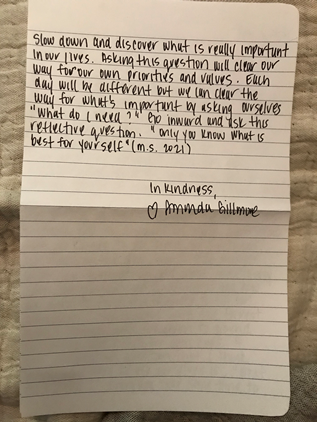 Slow down and discover what is really important
in our lives. Asking this question will clear our
way for our own priorities and values. Each
day will be different but we can clear the
way for what's important by asking ourselves
"What do I need?" Go inward and ask this
reflective question. "Only you know what is
best for yourself" (m.s. 2021)
In kindness,
♡ Amanda Gillmore